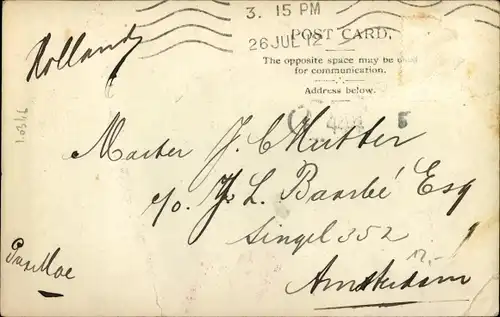 Holland
3. 15 PM
26 JUL 12
POST CARD.
The opposite space may be used
for communication.
Address below.
Master J. C. Mutter
c/o. L. Baarbé Esq
Singel 352
Amsterdam
12,-